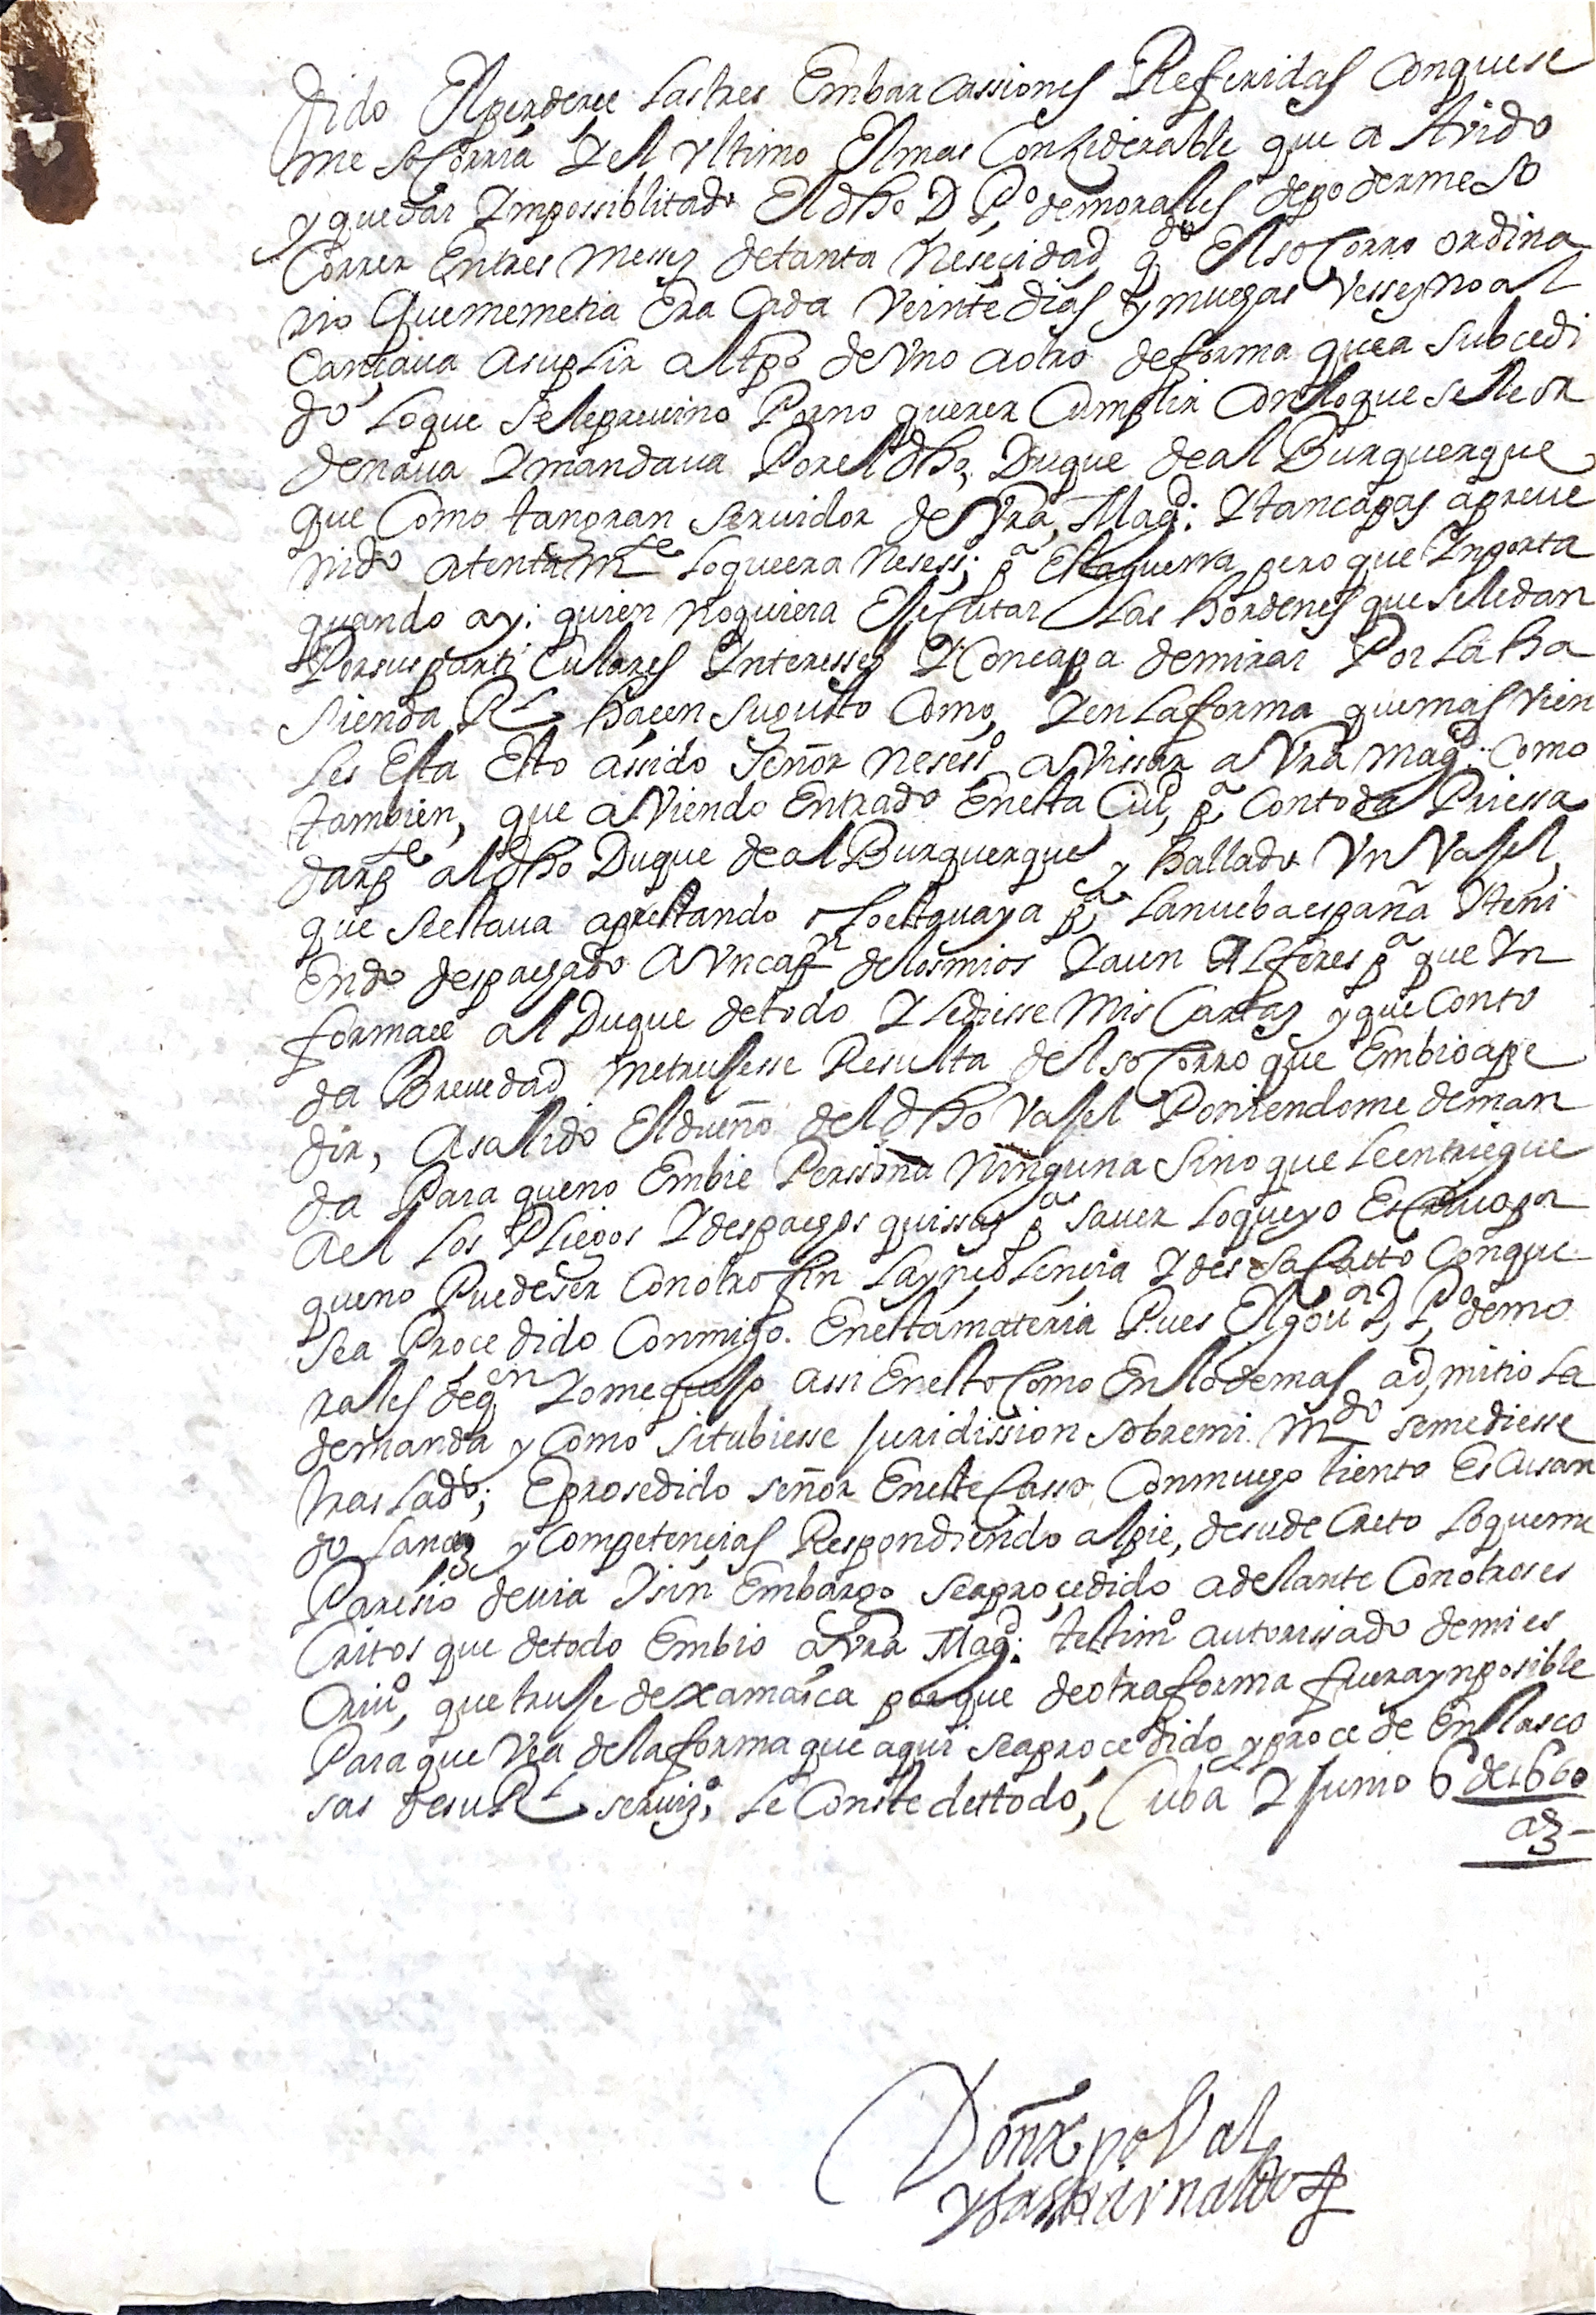 dido El perderce las tres Embarcassiones Referidas Conquese
me soCorria Y el Vltimo El mas Considerable que a Avido
y quedar Ymposiblitado El dho D Pº demorales depodermeSo
Correr Entres Messes detanta Nesecidad q do El soCorro ordina
rio Quememetia Era Cada Veinte dias y muchas Vesses no al
Cançaua asuplir al tpo de Vno aotro deforma que a subcedi
do Loque Selepreuino Porno querer Cumplir Conlloque se lle or
denaua Ymandaua Porel dho, Duque de al Burquerque
que Como tangran Servidor de Vra, Magd: Ytancapas apreue
nido atentamte Loqueera Neses; pa Estaguerra pero que Ynporta
quando ay: quien Noquiera Essecutar Las hordenes que seledan
Porsusparti Culares Ynteresses Y Concapa demirar Por La ha
sienda Rl, hacen sugusto Como, Yen La forma quemas Vien
Les Esta Esto assido Señor Nesesso aVissar a Vra Magd: Como
tambien, que aViendo Entrado Enesta Ciud, pa Contoda Priessa
darpte al dho Duque de al Burquerque y hallado Vn Vasel
que seestaua aprestando Loestguaya pa La nueba españa Yteni
Endo despachado AVncapn delosmios Yaun Alferes pa que Yn
formace al Duque detodo Y Lediesse Mis Cartas y que Conto
da Breuedad metrusesse Resulta del soCorro que Embioape
dir, Asalido Eldueño del dho Vasel Poniendome deman
da Para queno Embie Perssona Ninguna Sino que Leentriegue
ael Los Pliegos Y despachos quissas pa sauer Loqueyo Escriuopor
queno Puedeser Conotro fin Laynsolencia Y desaCatto Conque
sea Procedido Conmigo. Enestamateria Pues Elgour D, Pº demo
rales deqn Yomequesso assi EnestoComo Enlodemas admitio La
demanda y Como situbiesse Juridission sobremi. mdo semediesse
traslado; Eprosedido señor EnesteCasso Conmucho tiento Escusan
do Lances y Competencias Respondiendo alpie, desudeCreto Loqueme
Paresio deuia Ysin Embargo seaproçedido adelante Conotroses
Critos que detodo Embio aVra Magd: testimo autorissado demies
Criuo, quetruse dexamaica porque deotraforma fueraynposible
Paraque Vea delaforma que aqui seaprocedido yprocede Enlasco
sas desuRl seruizo; Le Conste destodo, Cuba Y Junio 6 de 1660
as -
Don xpoVal
ysassi arnaldo